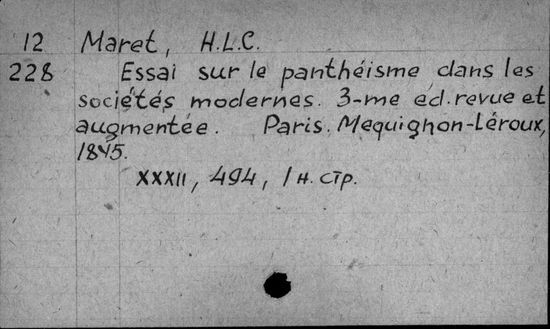 12 Maret, H.L.C.
228 Essai sur le panthéisme dans les
sociétés modernes. 3-me éd. revue et
augmentée. Paris. Mequighon-Léroux,
1845.
XXXII, 494, 1 н. стр.